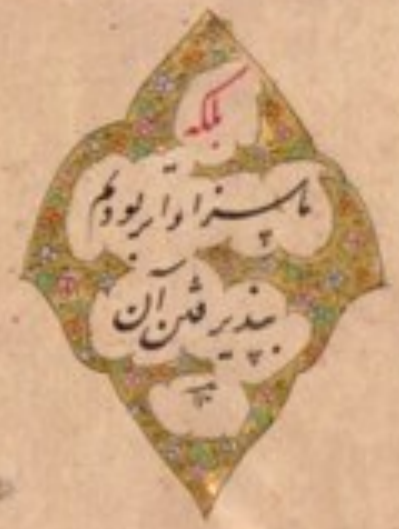 بلکه
ما سزاوارتر بودیم
بپذیرفتن آن